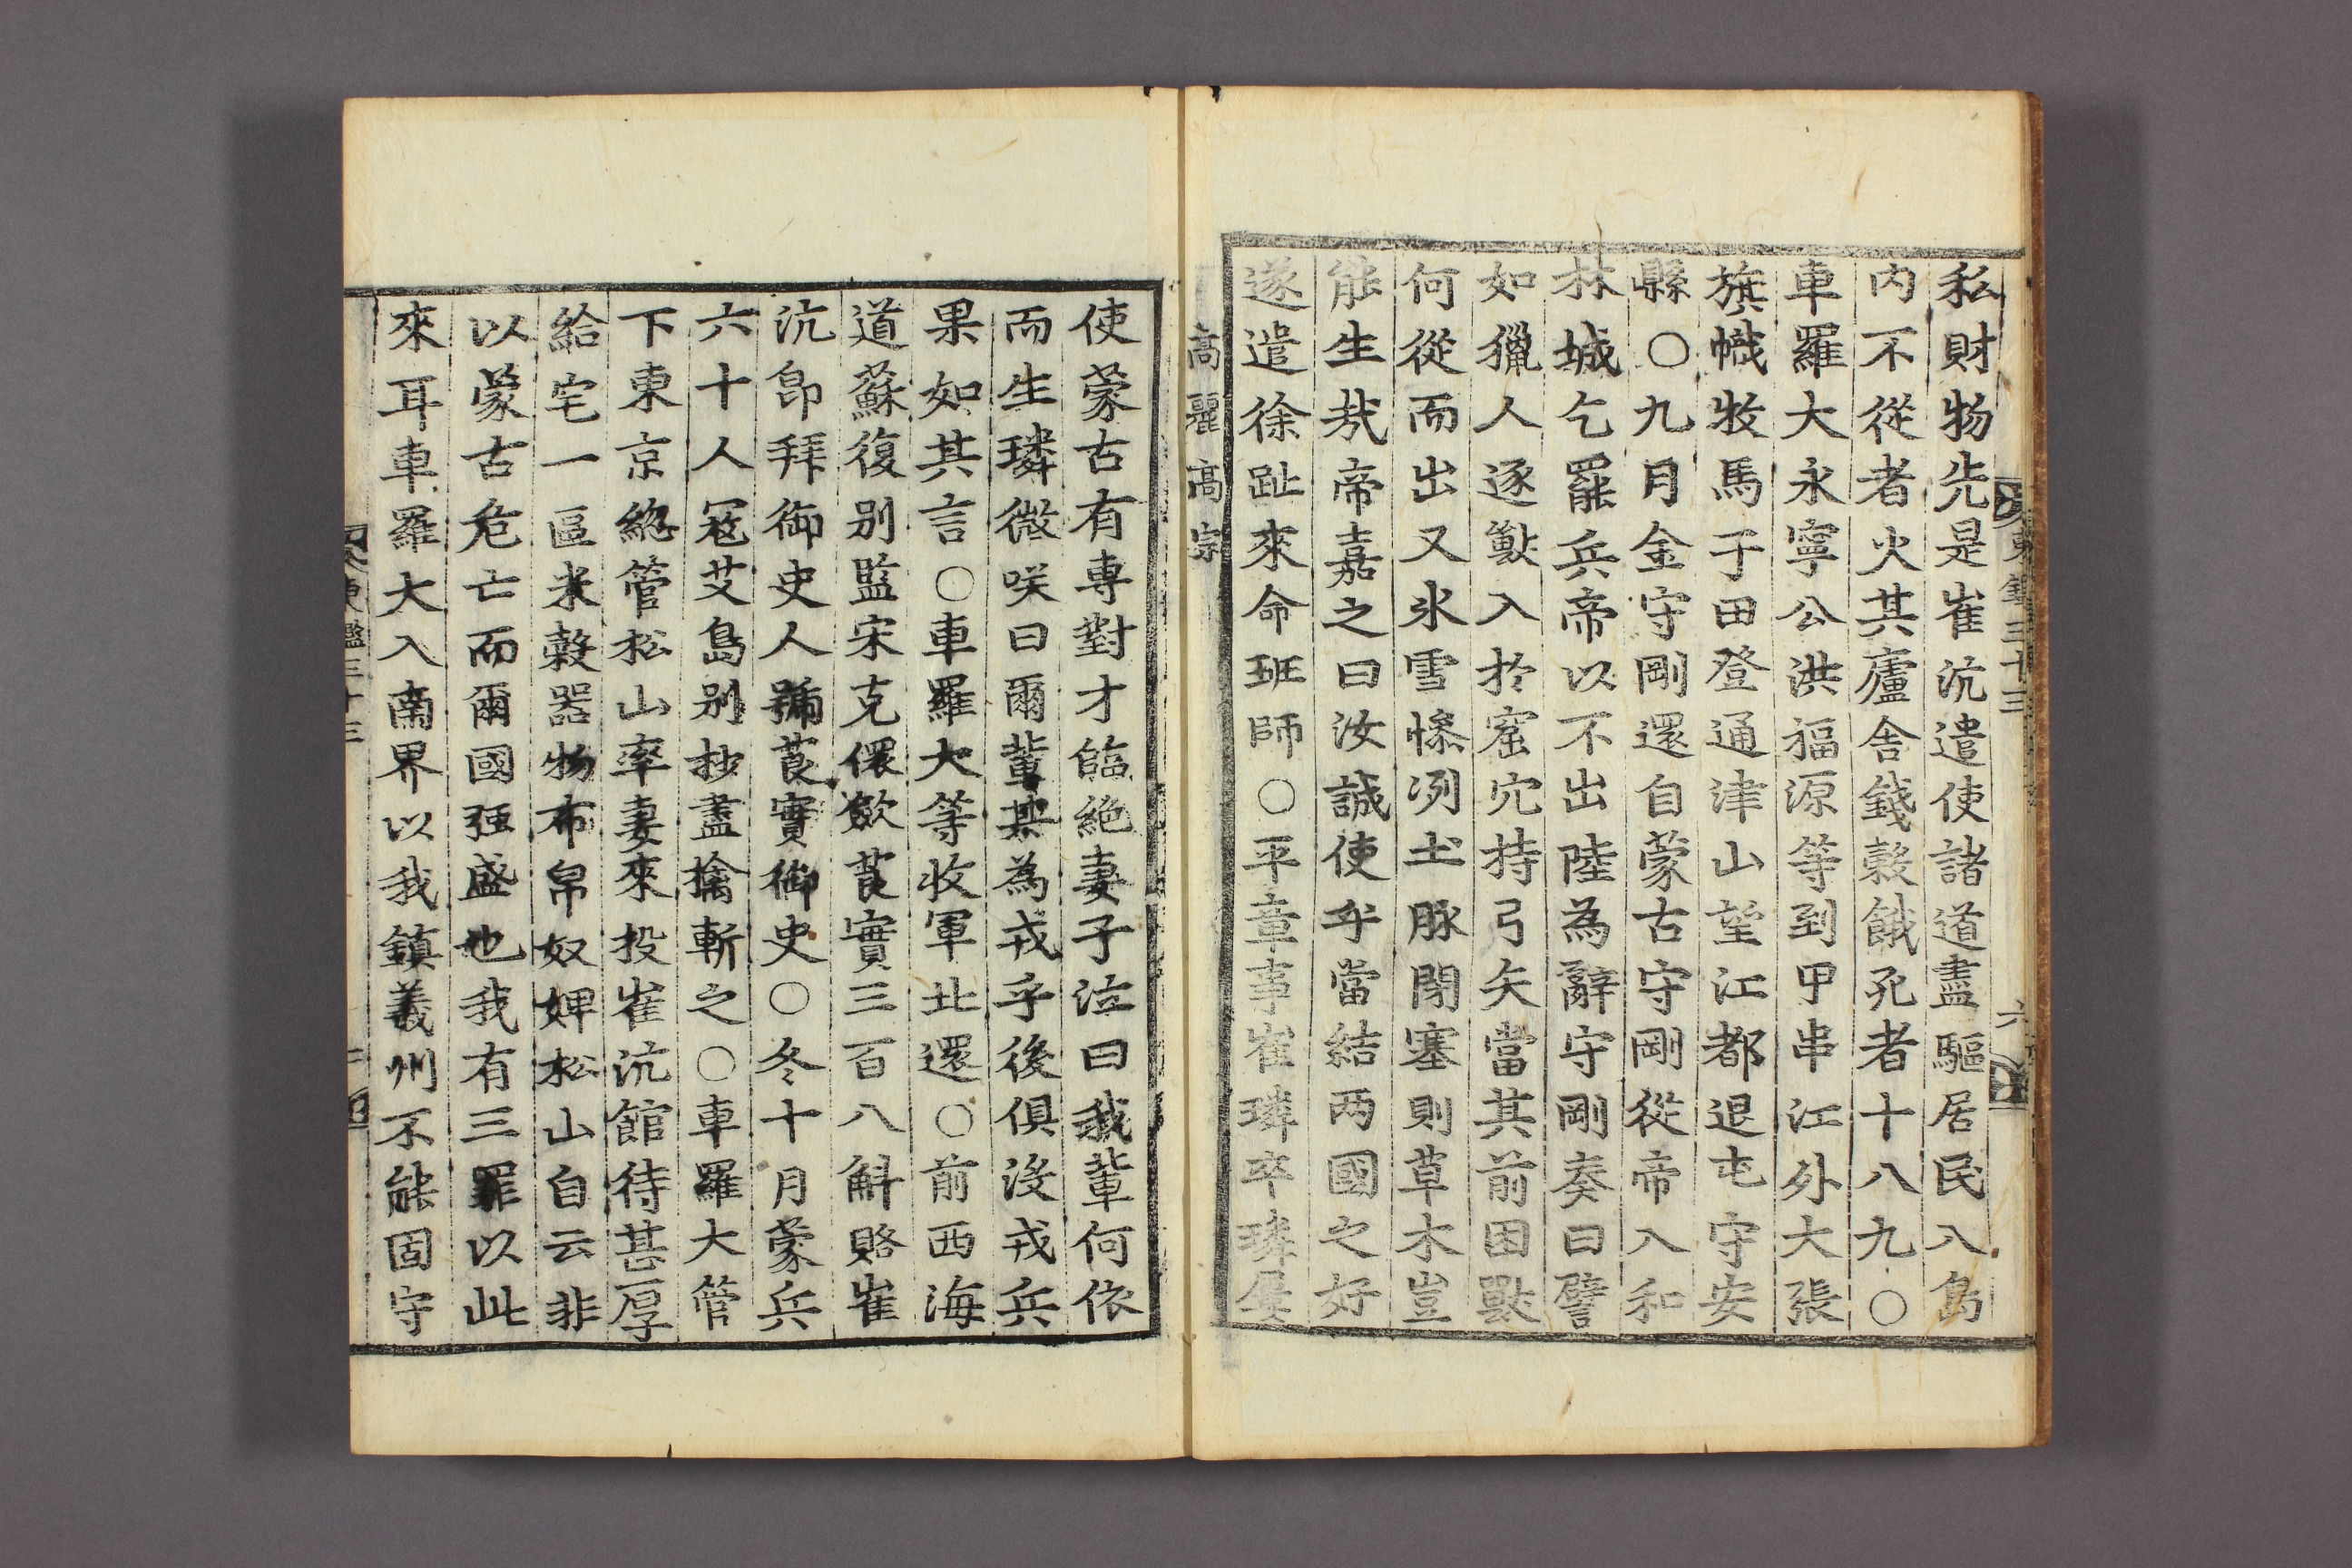 東鑑三十三
六
私財物先是崔沆遣使諸道盡驅居民入島
内不從者火其廬舍錢穀餓死者十八九○
車羅大永寧公洪福源等到甲串江外大張
旗幟牧馬于田登通津山望江都退屯守安
縣○九月金守剛還自蒙古守剛從帝入和
林城乞罷兵帝以不出陸為辭守剛奏曰譬
如獵人逐獸入於窟穴持弓矢當其前困獸
何從而出又氷雪慘冽土脉閉塞則草木豈
能生㢤帝嘉之曰汝誠使乎當結兩國之好
遂遣徐趾來命班師○平章事崔璘卒璘屢
高麗高宗
使蒙古有專對才臨絶妻子泣曰我輩何依
而生璘微咲曰爾輩某為戎乎後俱没戎兵
果如其言○車羅大等收軍北還○前西海
道蘇復别監宋克儇歛莨實三百八斛賂崔
沆卽拜御史人號莨實御史○冬十月蒙兵
六十人冦艾島别抄盡擒斬之○車羅大管
下東京総管松山率妻來投崔沆館待甚厚
給宅一區米穀器物布帛奴婢松山自云非
以蒙古危亡而爾國强盛也我有三罪以此
來耳車羅大入南界以我鎮義州不能固守
東鑑三十三